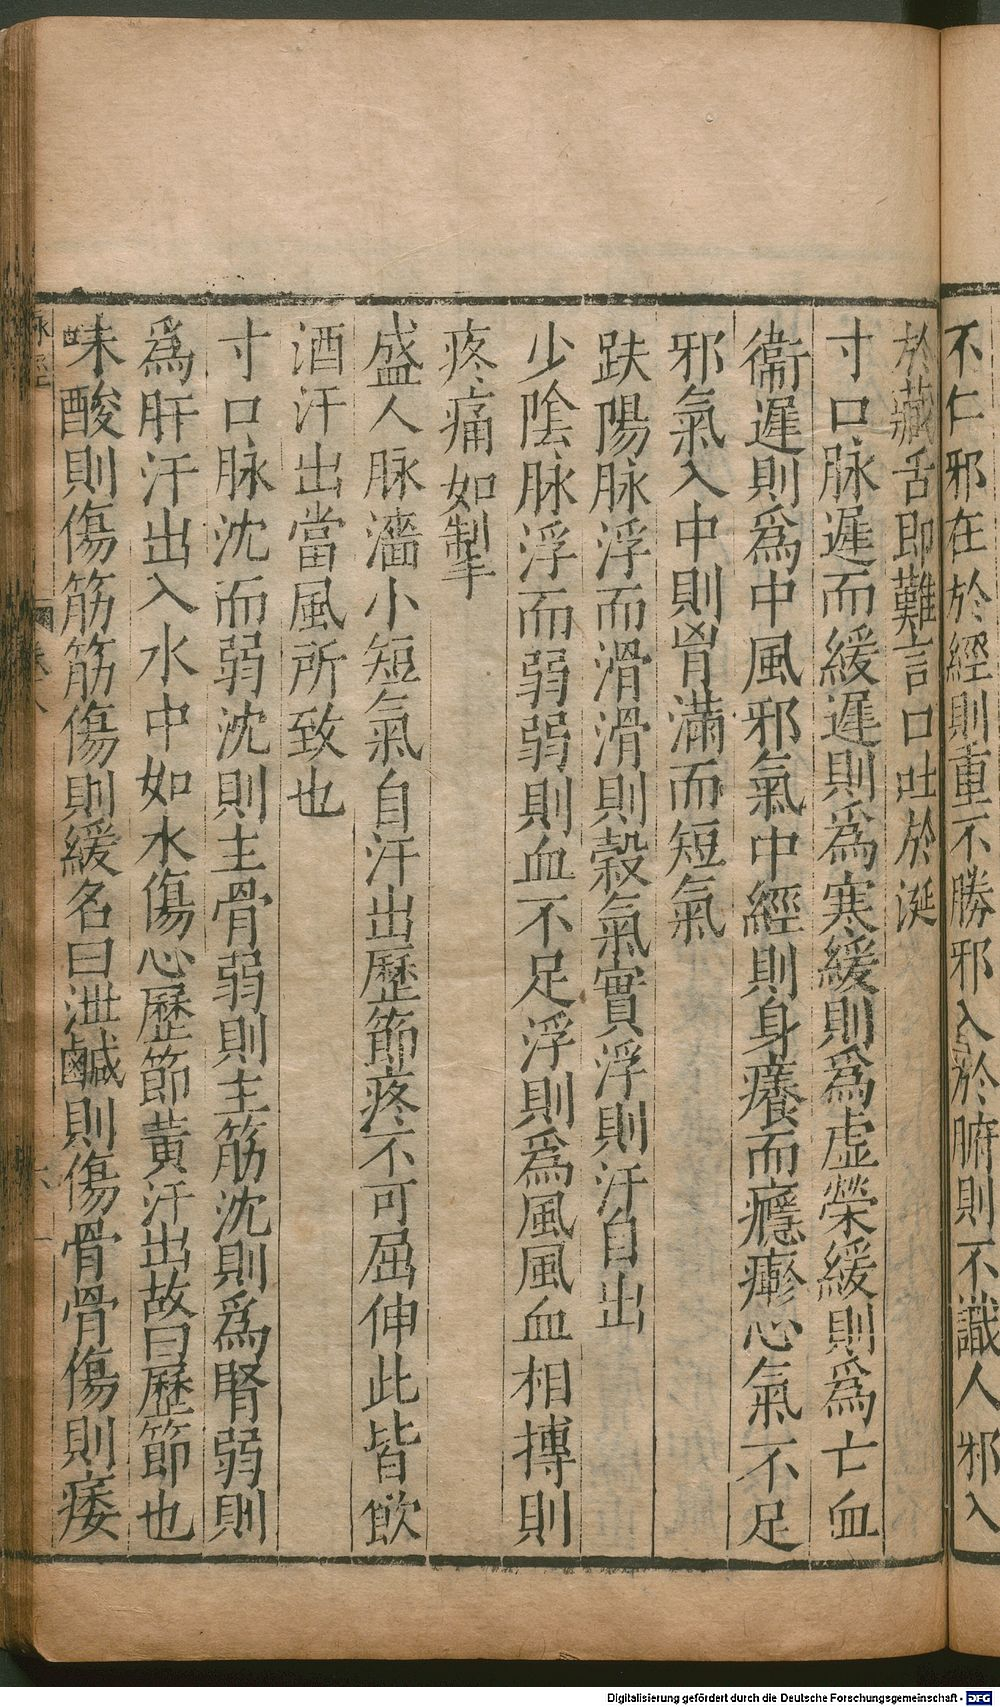 不仁邪在於經則重不勝邪入於腑則不識人邪入
於藏舌即難言口吐於涎
寸口脉遲而緩遲則為寒緩則為虛榮緩則為亡血
衛遲則為中風邪氣中經則身癢而癮瘮心氣不足
邪氣入中則胷滿而短氣
趺陽脉浮而滑滑則穀氣實浮則汗自出
少陰脉浮而弱弱則血不足浮則為風風血相摶則
疼痛如掣
盛人脉濇小短氣自汗出歷節疼不可屈伸此皆飲
酒汗出當風所致也
寸口脉沈而弱沈則主骨弱則主筋沈則為腎弱則
為肝汗出入水中如水傷心歷節黃汗出故曰歷節也
味酸則傷筋筋傷則緩名曰泄鹹則傷骨骨傷則痿
Digitalisierung gefördert durch die Deutsche Forschungsgemeinschaft - DFG